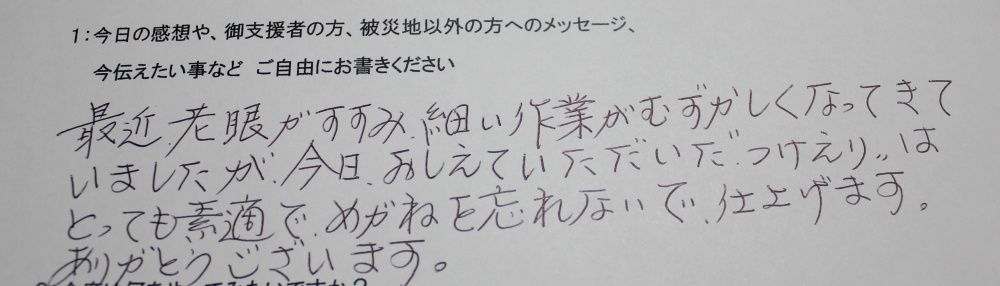 1：今日の感想や、御支援者の方、被災地以外の方へのメッセージ、
今伝えたい事など ご自由にお書きください
最近、老眼がすすみ、細い作業がむずかしくなってきて
いましたが、今日、おしえていただいだ、つけえり〃は
とっても素適で、めがねを忘れないで、仕上げます。
ありがとうございます。